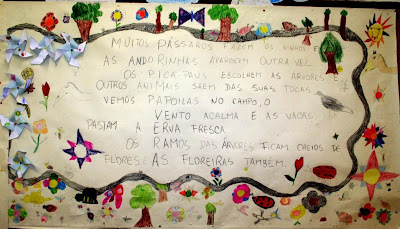 MUITOS PÁSSAROS FAZEM OS NINHOS E
AS ANDORINHAS APARECEM OUTRA VEZ.
OS PICA PAUS ESCOLHEM AS ÁRVORES E
OUTROS ANIMAIS SAEM DAS SUAS TOCAS.
VEMOS PAPOILAS NO CAMPO, O
VENTO ACALMA E AS VACAS
PASTAM A ERVA FRESCA.
OS RAMOS DAS ÁRVORES FICAM CHEIOS DE
FLORES E AS FLOREIRAS TAMBÉM.